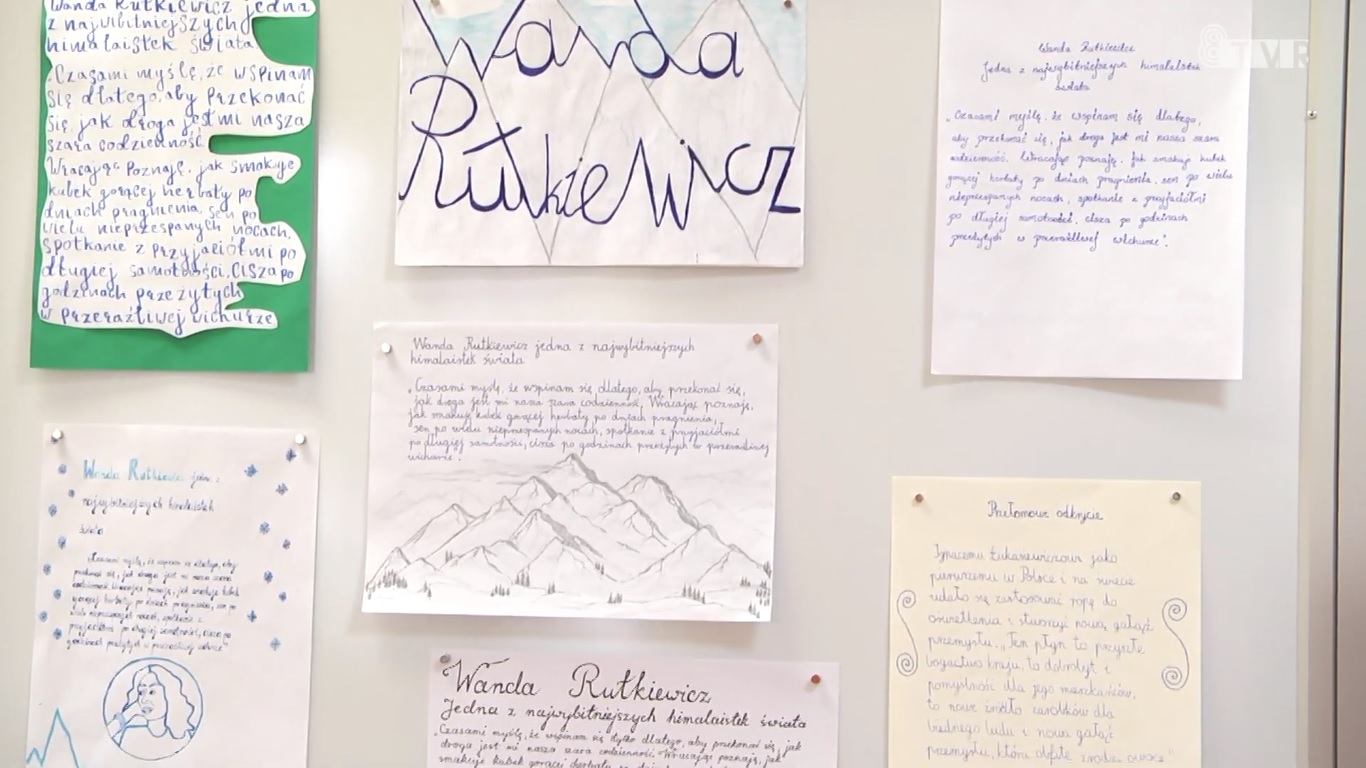 Wanda Rutkiewicz jedna
z najwybitniejszych
himalaistek świata
„Czasami myślę, że wspinam
się dlatego, aby przekonać
się jak droga jest mi nasza
szara codzienność
Wracając Poznaję, jak smakuje
kubek gorącej herbaty po
dniach pragnienia, sen po
wielu nieprzespanych nocach,
spotkanie z przyjaciółmi po
długiej samotności, cisza po
godzinach przeżytych
w przeraźliwej wichurze
Wanda
Rutkiewicz
Wanda Rutkiewicz
Jedna z najwybitniejszych himalaistek
świata
„Czasami myślę, że wspinam się dlatego,
aby przekonać się, jak droga jest mi nasza szara
codzienność. Wracając poznaję, jak smakuje kubek
gorącej herbaty po dniach pragnienia, sen po wielu
nieprzespanych nocach, spotkanie z przyjaciółmi
po długiej samotności, cisza po godzinach
przeżytych w przeraźliwej wichurze".
TVR
Wanda Rutkiewicz jedna z najwybitniejszych
himalaistek świata
„Czasami myślę, że wspinam się dlatego, aby przekonać się,
jak droga jest mi nasza szara codzienność, Wracając poznaję,
jak smakuje kubek gorącej herbaty po dniach pragnienia,
sen po wielu nieprzespanych nocach, spotkanie z przyjaciółmi
po długiej samotności, cisza po godzinach przeżytych w przeraźliwej
wichurze".
Wanda Rutkiewicz jedna z
najwybitniejszych himalaistek
świata
Czasami myślę, że wspinam się dlatego, aby
przekonać się, jak droga jest mi nasza szara
codzienność. Wracając poznaję, jak smakuje kubek
gorącej herbaty po dniach pragnienia, sen po
wielu nieprzespanych nocach, spotkanie z
przyjaciółmi po długiej samotności, cisza po
godzinach przeżytych w przeraźliwej wichurze"
Wanda Rutkiewicz
Jedna z najwybitniejszych himalaistek świata
„Czasami myślę, że wspinam się tylko dlatego, aby przekonać się, jak
droga jest mi nasza szara codzienność. Wracając poznaję, jak
smakuje kubek gorącej herbaty
Przełomowe odkrycie
Ignacemu Łukasiewiczowi jako
pierwszemu w Polsce i na świecie
udało się zastosować ropę do
oświetlenia i stworzyć nową gałąź
przemysłu. „Ten płyn to przyszłe
bogactwo kraju, to dobrobyt i
pomyślność dla jego mieszkańców,
to nowe źródło zarobków dla
biednego ludu i nowa gałąź
przemysłu, która obfite zrodzi owoce"